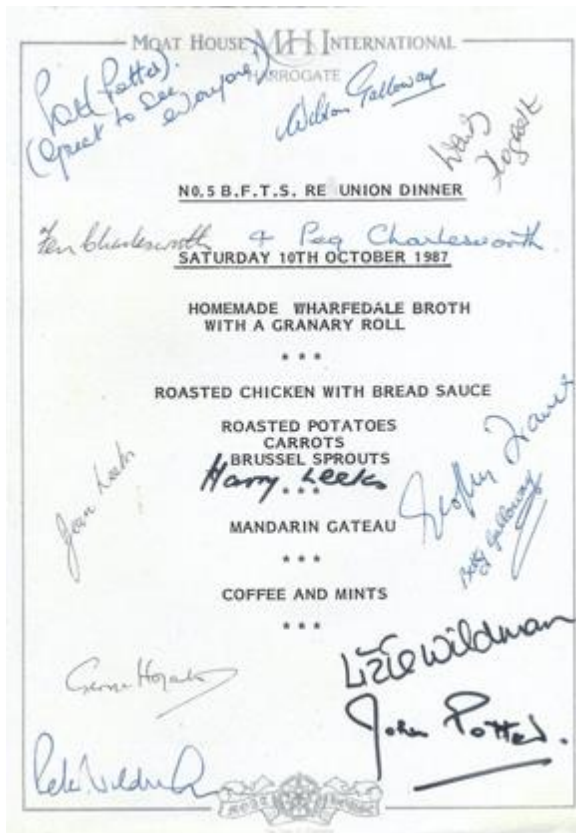 MOAT HOUSE MHI INTERNATIONAL
HARROGATE
Potter).
(Great to see
everyone!)
Wilson Galloway
NO.5 B.F.T.S. RE UNION DINNER
Charlesworth & Peg Charlesworth
SATURDAY 10TH OCTOBER 1987
HOMEMADE WHARFEDALE BROTH
WITH A GRANARY ROLL
* * *
ROASTED CHICKEN WITH BREAD SAUCE
ROASTED POTATOES
CARROTS
BRUSSEL SPROUTS
Harry Leeks
* * *
Jean Leeks
MANDARIN GATEAU
Betty Galloway
* * *
COFFEE AND MINTS
* * *
Wildman
John Potter.
MOAT HOUSE